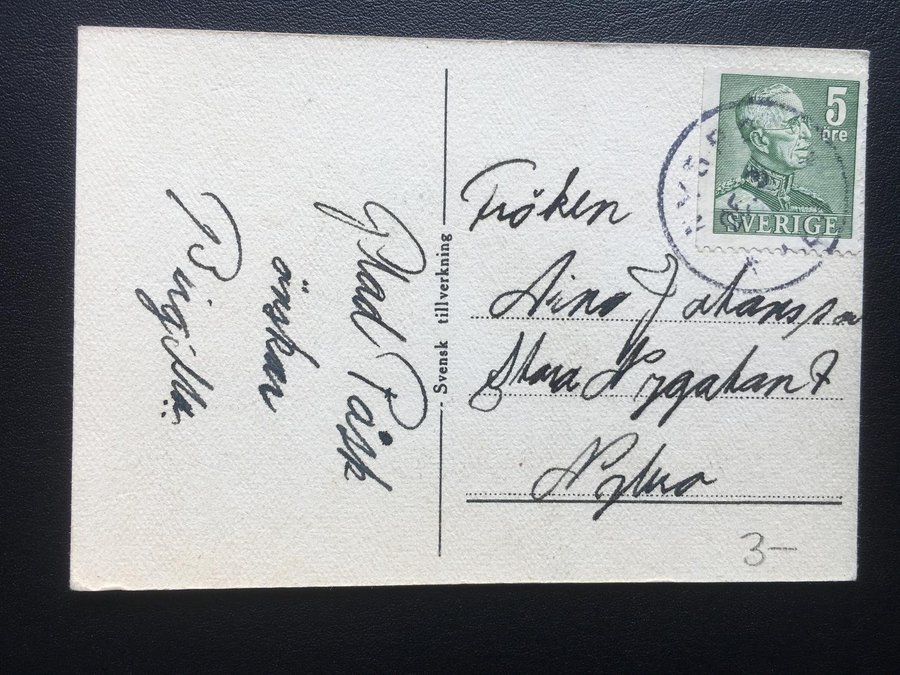 Glad Påsk
önskar
Birgitta
Svensk tillverkning
5
öre
SVERIGE
Fröken
Aina Johansson
Stora Nygatan 7
Nybro
3—